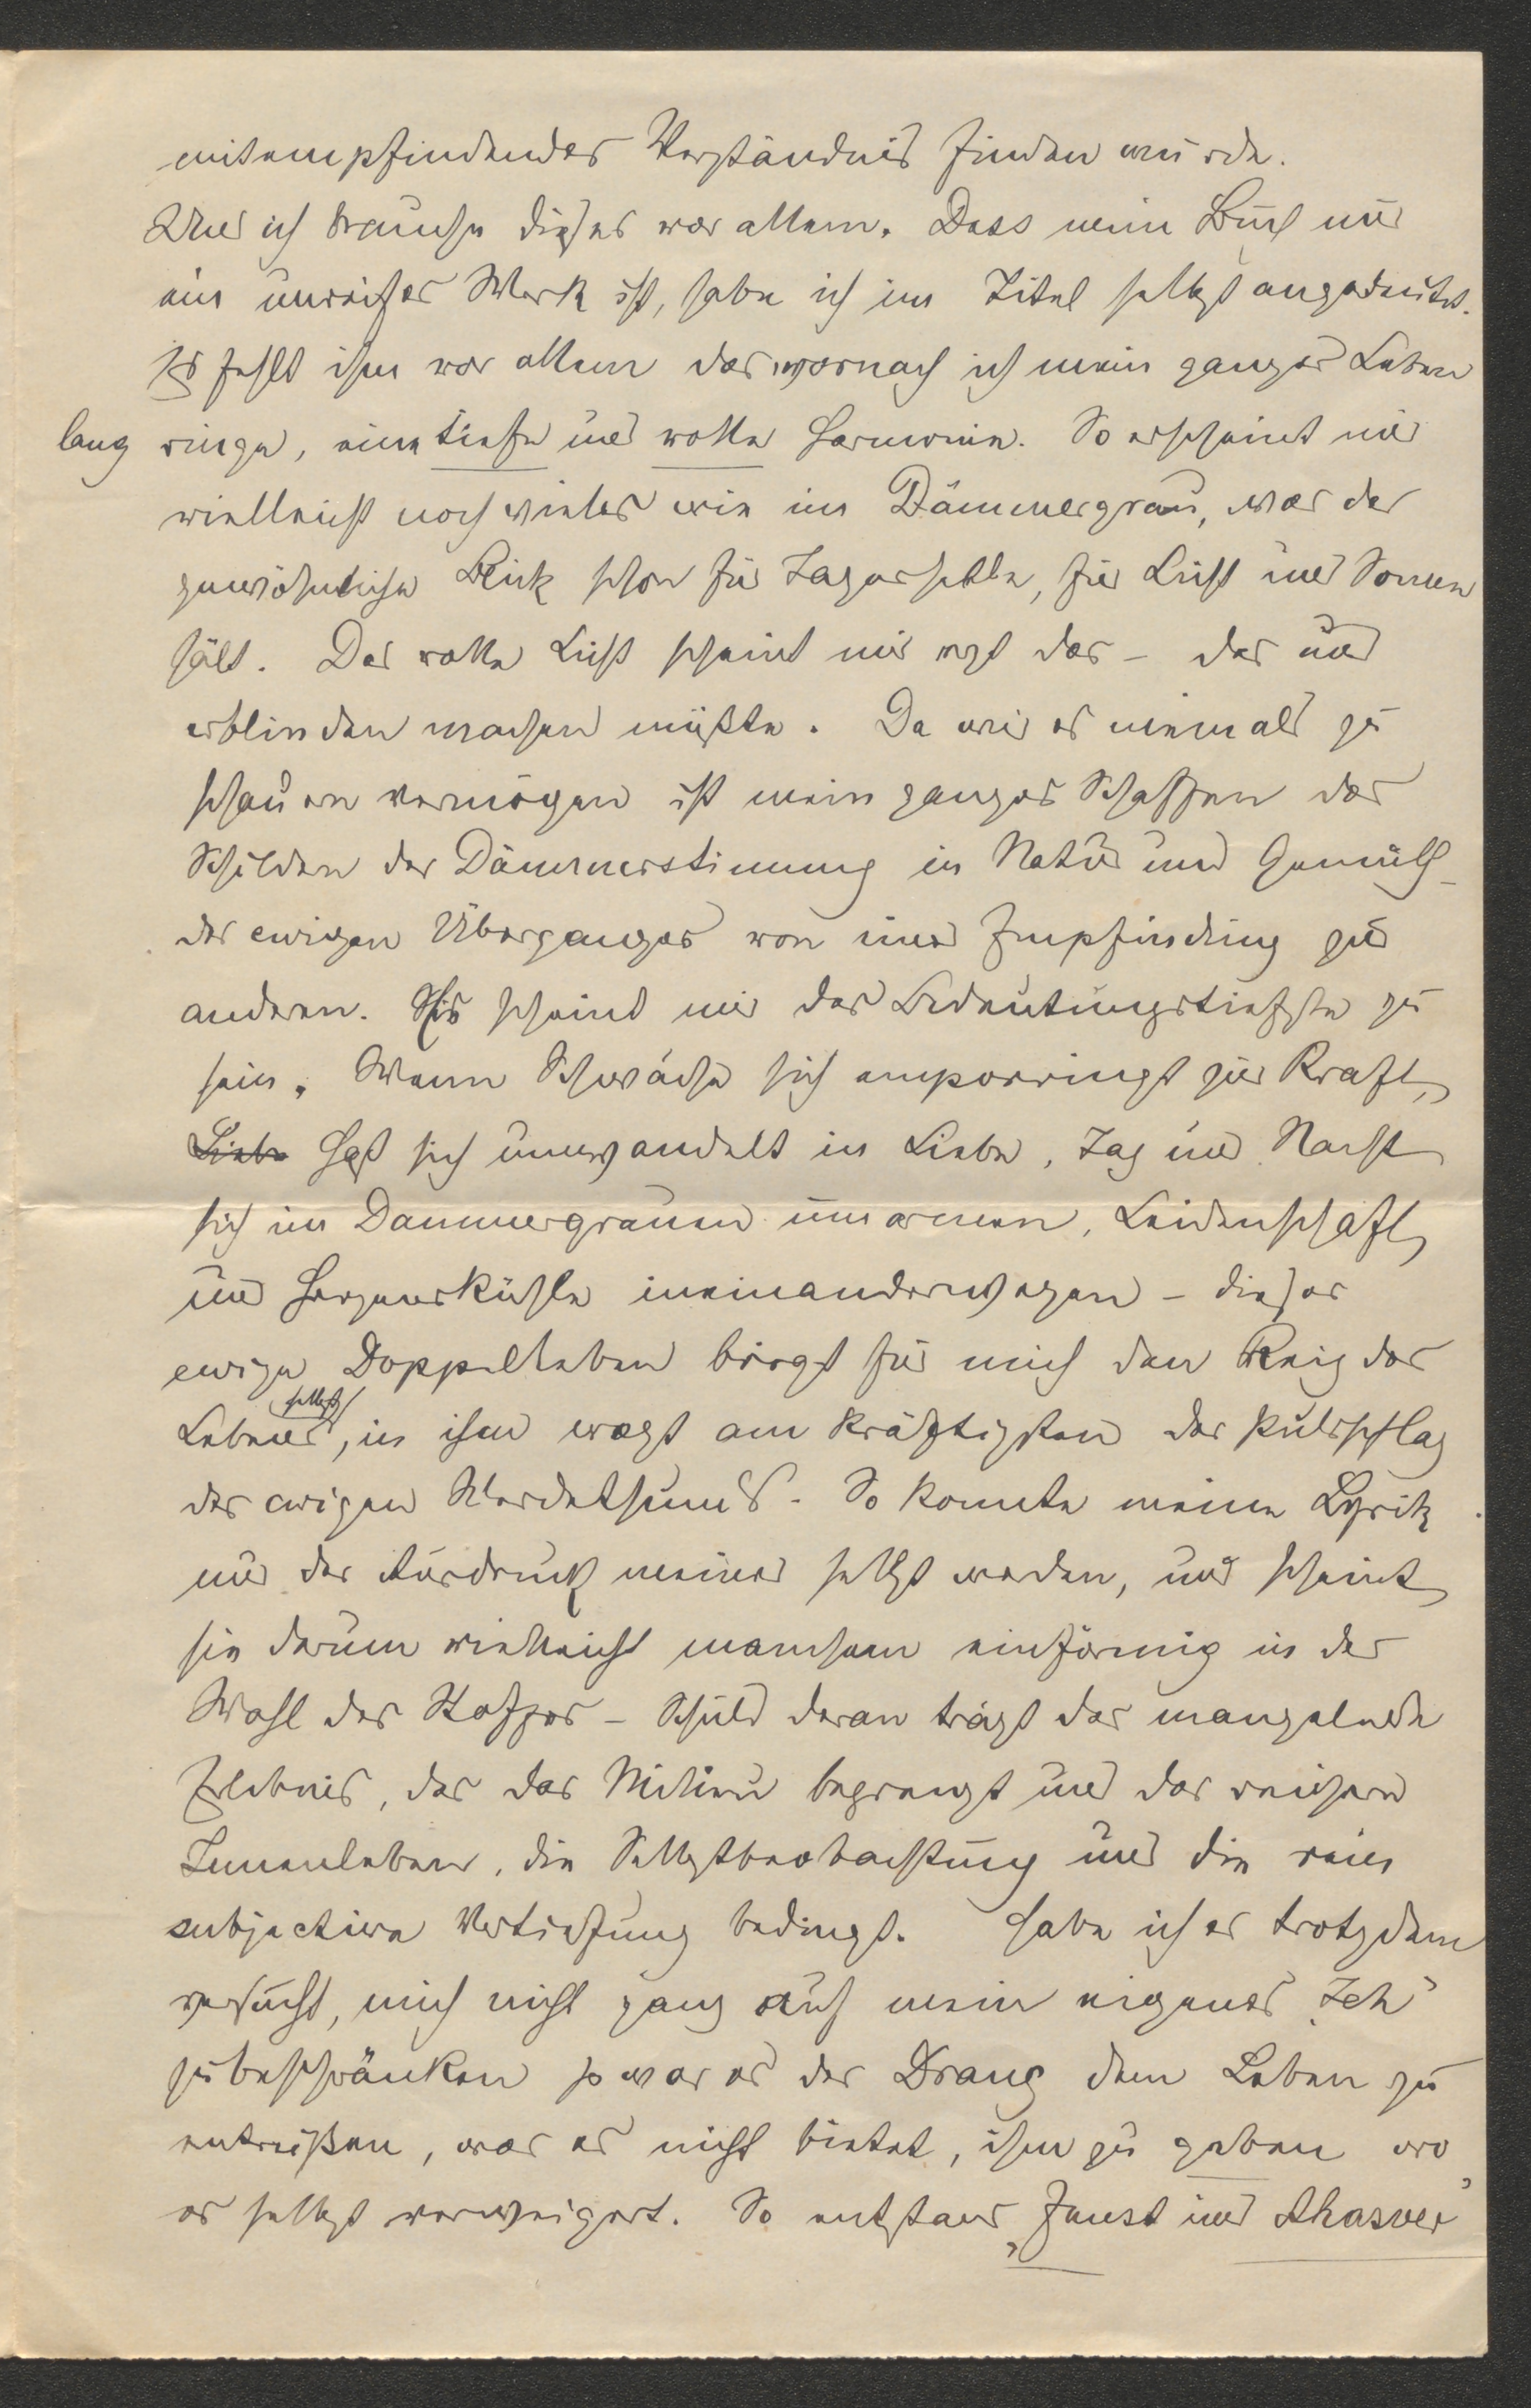 mitempfindendes Verständnis finden würde.
Und ich brauche dieses vor allem. Dass mein Buch nur
ein unreifes Werk ist, habe ich im Titel selbst angedeutet.
Es fehlt ihm vor allem das, wornach ich mein ganzes Leben
lang ringe, eine tiefe und volle Harmonie. So erscheint mir
vielleicht noch vieles wie im Dämmergrau, was der
gewöhnliche Blick schon für Tageshelle, für Licht und Sonne
hält. Das volle Licht scheint mir erst das – das uns
erblinden machen müßte. Da wir es niemals zu
schauen vermögen ist mein ganzes Schaffen das
Schildern der Dämmerstimmung in Natur und Gemüth –
des ewigen Überganges von einer Empfindung zur
anderen. Dies scheint mir das Bedeutungstiefste zu
sein. Wenn Schwäche sich emporringt zur Kraft,
Liebe Haß sich umwandelt in Liebe, Tag und Nacht
sich im Dämmergrauen umarmen, Leidenschaft
und Herzenskühle ineinanderwogen – dieses
ewige Doppelleben birgt für mich den Reiz des
Lebens selbst, in ihm wogt am kräftigsten der Pulsschlag
des ewigen Werdethums. So konnte meine Lyrik
nur der Ausdruck meiner selbst werden, und scheint
sie darum vielleicht manchem einförmig in der
Wahl des Stoffes – Schuld daran trägt das mangelnde
Erlebnis, das das Milieu begrenzt und das reichere
Innenleben, die Selbstbeobachtung und die rein
subjective Vertiefung bedingt. Habe ich es trotzdem
versucht, mich nicht ganz auf mein eigenes „Ich“
zu beschränken so war es der Drang dem Leben zu
entreißen, was es nicht bietet, ihm zu geben wo
es selbst verweigert. So entstand „Faust und Ahasver“